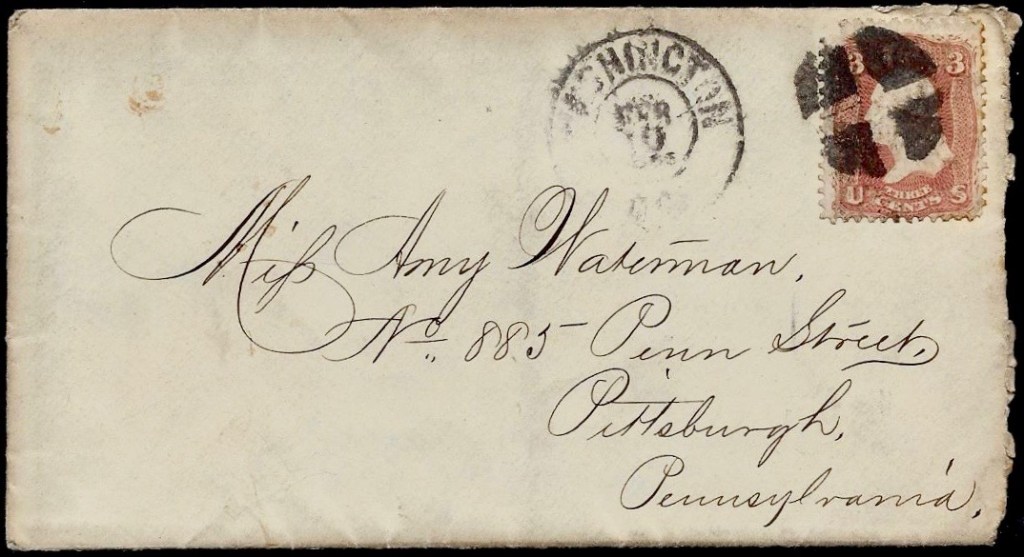 WASHINGTON
3 3
U THREE CENTS S
Miss Amy Waterman,
No. 885 Penn Street,
Pittsburgh,
Pennsylvania,